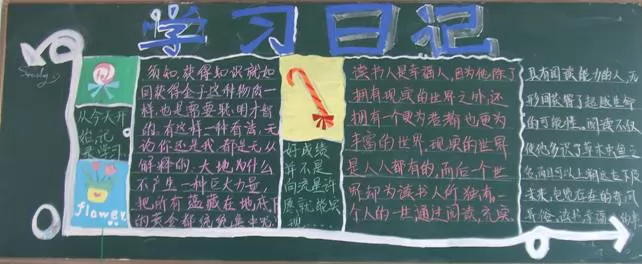 学习日记
Study
从今天开
始记
学习
flower
须知,获得知识就如
同获得金子这种物质一
样,也是需要聪明才智
的,有这样一种看法,无
论你还是我,都是无从
解释的:大地为什么
不产生一种巨大力量,
把所有蕴藏在地底下
的黄金都统统集中起
好成绩
并不是
向流星许
愿就能实
现……
读书人是幸福人,因为他除了
拥有现实的世界之外,还
拥有一个更为浩瀚也更为
丰富的世界。现实的世界
是人人都有的,而后一个世
界却为读书人所独有。一
个人的一生通过阅读,充实
具有阅读能力的人,无
形间获得了超越生命
的可能性。阅读不仅
使他多识了草木虫鱼之
名,而且可以上溯远古下及
未来,饱览存在的奇闻
异俗。读书幸福